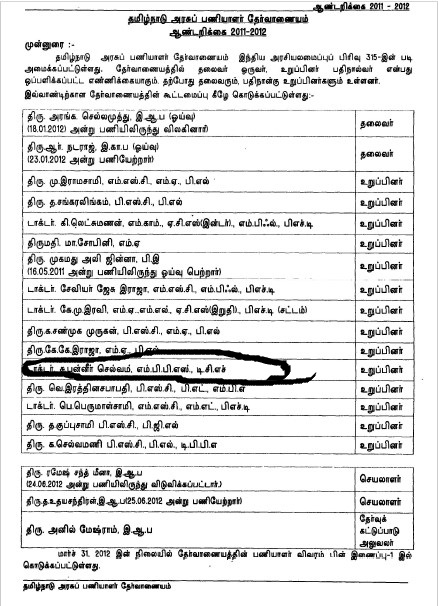 ஆண்டறிக்கை 2011 - 2012
தமிழ்நாடு அரசுப் பணியாளர் தேர்வாணையம்
ஆண்டறிக்கை 2011-2012
முன்னுரை : -
தமிழ்நாடு அரசுப் பணியாளர் தேர்வாணையம் இந்திய அரசியலமைப்புப் பிரிவு 315-இன் படி
அமைக்கப்பட்டுள்ளது. தேர்வாணையத்தில் தலைவர் ஒருவர், உறுப்பினர் பதினால்வர் என்பது
ஒப்பளிக்கப்பட்ட எண்ணிக்கையாகும். தற்போது தலைவரும், பதினான்கு உறுப்பினர்களும் உள்ளனர்.
இவ்வாண்டிற்கான தேர்வாணையத்தின் கூட்டமைப்பு கீழே கொடுக்கப்பட்டுள்ளது:-
திரு. அரங்க. செல்லமுத்து, இ.ஆ.ப (ஓய்வு) தலைவர்
(18.01.2012) அன்று பணியிலிருந்து விலகினார்)
திரு.ஆர். நடராஜ், இ.கா.ப (ஓய்வு) தலைவர்
(23.01.2012) அன்று பணியேற்றார்)
திரு. மு.இராமசாமி, எம்.எஸ்.சி., எம்.ஏ., பி.எல் உறுப்பினர்
திரு. த.சங்கரலிங்கம், பி.எஸ்.சி., பி.எல் உறுப்பினர்
டாக்டர். கி.லெட்சுமணன், எம்.காம்., ஏ.சி.எஸ்(இன்டர்)., எம்.பிஃல்., பிஎச்.டி உறுப்பினர்
திருமதி. மா.சோபினி, எம்.ஏ உறுப்பினர்
திரு. முகமது அலி ஜின்னா, பி.இ உறுப்பினர்
(16.05.2011 அன்று பணியிலிருந்து ஓய்வு பெற்றார்)
டாக்டர். சேவியர் ஜேசு இராஜா, எம்.எஸ்.சி., எம்.பிஃல்., பிஎச்.டி உறுப்பினர்
டாக்டர். கே.மு.இரவி, எம்.ஏ.,எம்.எல்., ஏ.சி.எஸ்(இறுதி)., பிஎச்.டி (சட்டம்) உறுப்பினர்
திரு.க.சண்முக முருகன், பி.எஸ்.சி., எம்.ஏ., பி.எல் உறுப்பினர்
திரு.கே.கே.இராஜா, எம்.ஏ., பி.எல் உறுப்பினர்
டாக்டர். சு.பன்னீர் செல்வம், எம்.பி.பி.எஸ்., டி.சி.எச் உறுப்பினர்
திரு. வெ.இரத்தினசபாபதி, பி.எஸ்.சி., பி.எட்., எம்.பி.ஏ உறுப்பினர்
டாக்டர். பெ.பெருமாள்சாமி, எம்.எஸ்.சி., எம்.எட்., பிஎச்.டி உறுப்பினர்
திரு. த.குப்புசாமி பி.எஸ்.சி., பி.ஜி.எல் உறுப்பினர்
திரு. க.செல்வமணி பி.எஸ்.சி., பி.எல்., டி.பி.பி.ஏ உறுப்பினர்
திரு. ரமேஷ் சந்த் மீனா, இ.ஆ.ப செயலாளர்
(24.06.2012 அன்று பணியிலிருந்து விடுவிக்கப்பட்டார்.)
திரு.த.உதயசந்திரன்,இ.ஆ.ப(25.06.2012 அன்று பணியேற்றார்) செயலாளர்
திரு. அனில் மேஷ்ராம், இ.ஆ.ப தேர்வுக்
கட்டுப்பாடு
அலுவலர்
மார்ச் 31, 2012 இன் நிலையில் தேர்வாணையத்தின் பணியாளர் விவரம் பின் இணைப்பு-1 இல்
கொடுக்கப்பட்டுள்ளது.
தமிழ்நாடு அரசுப் பணியாளர் தேர்வாணையம்